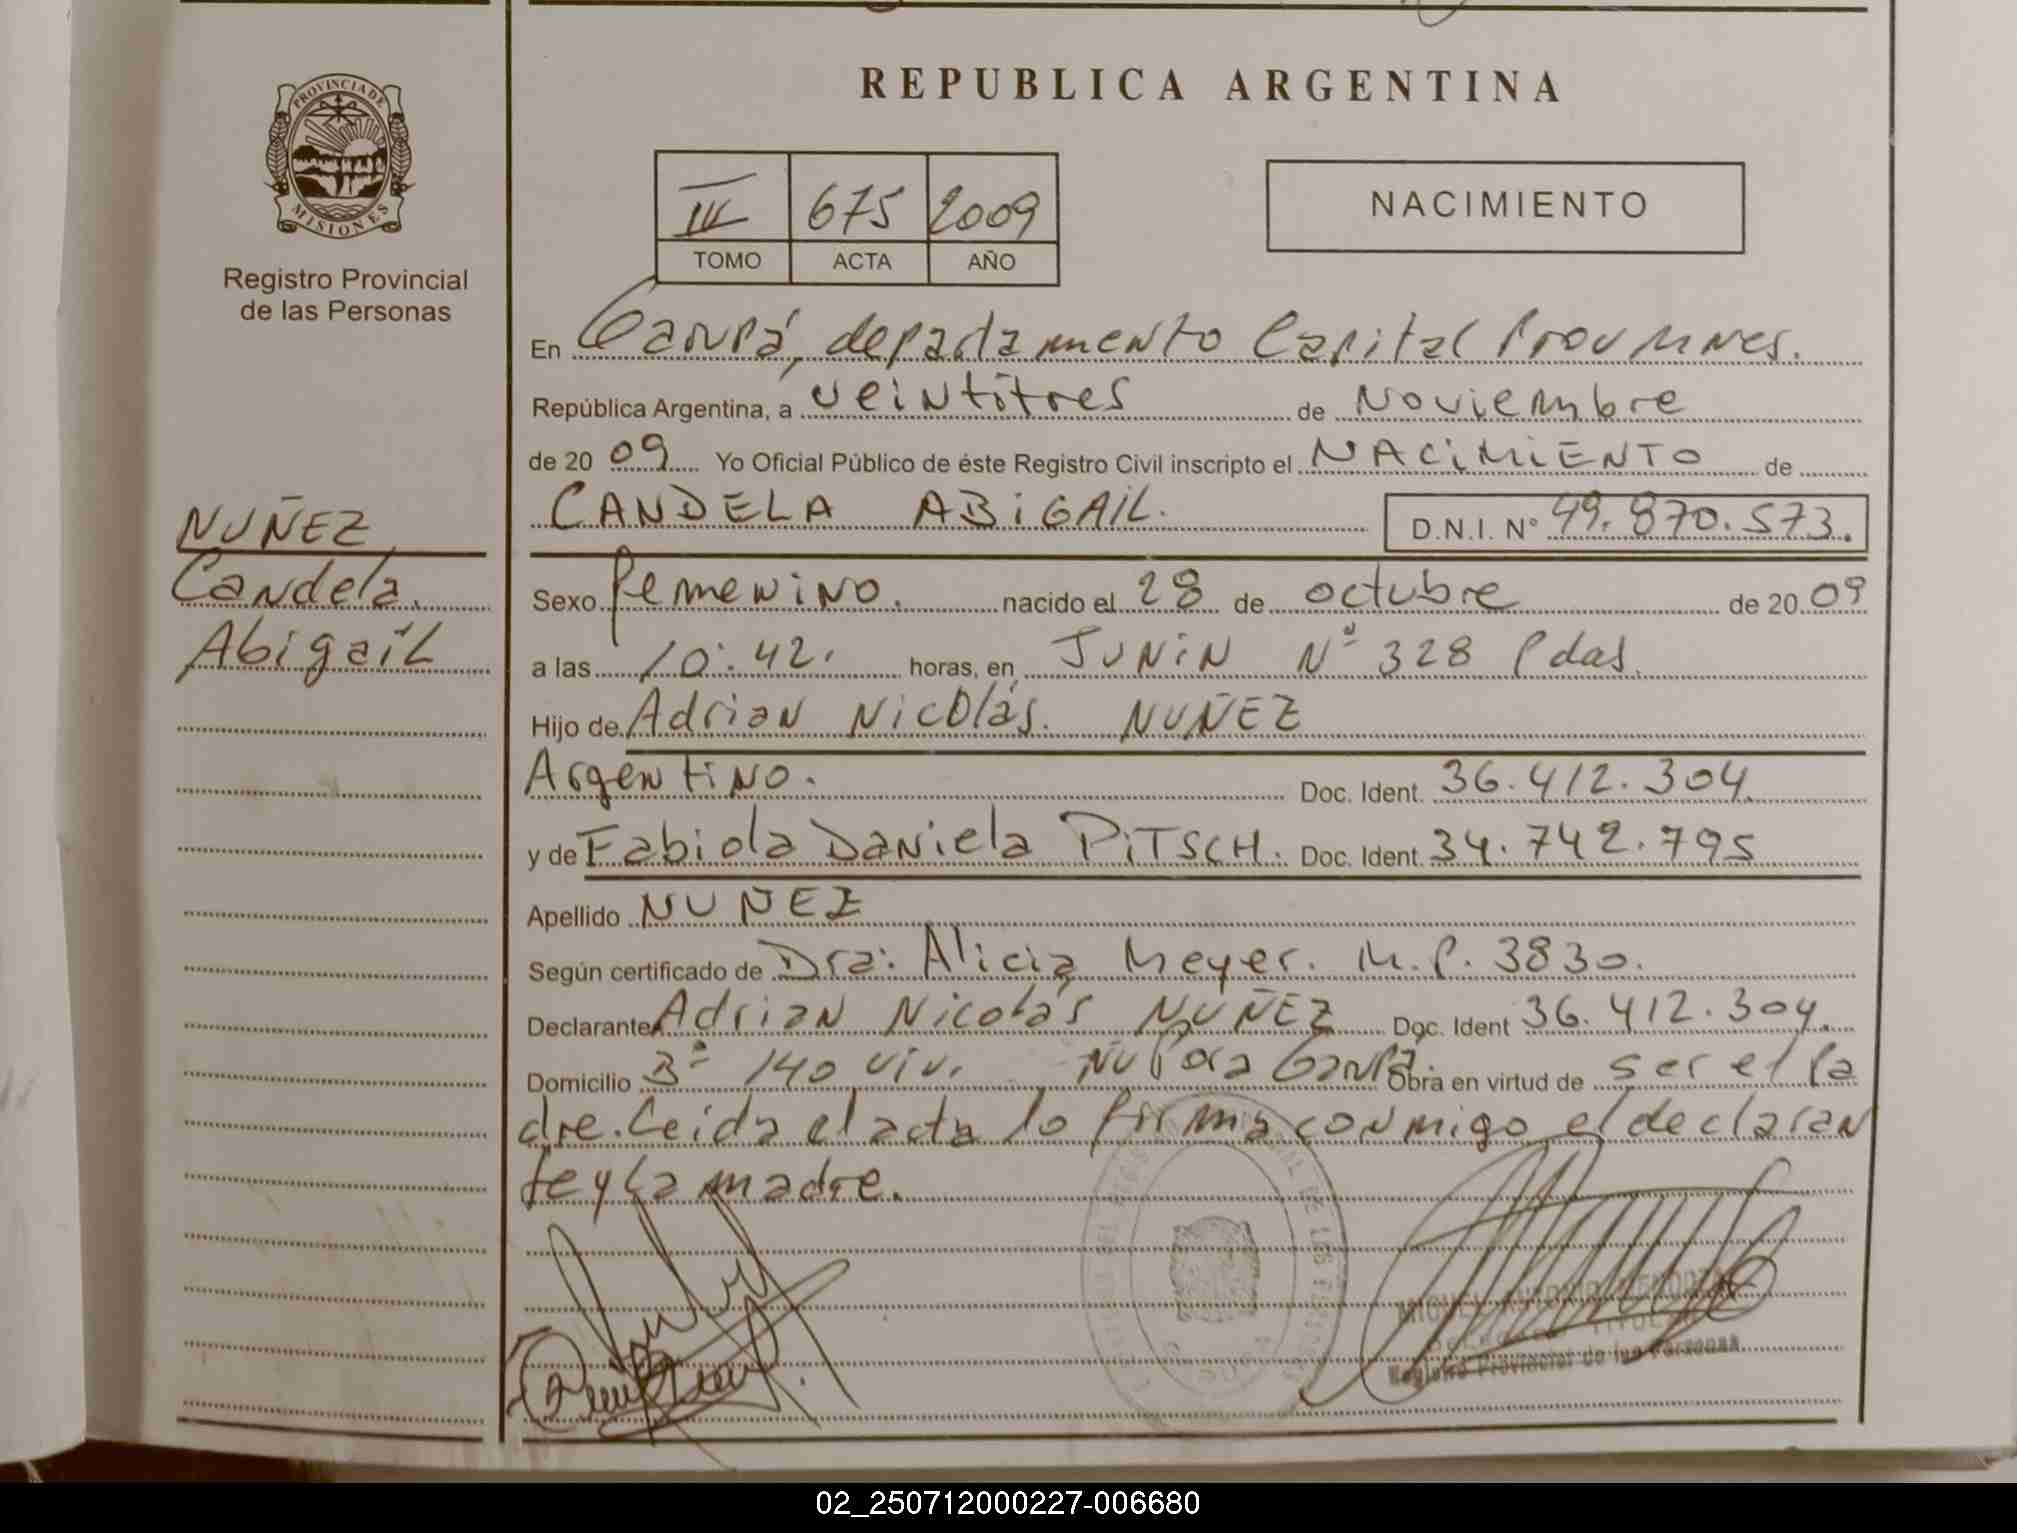 REPUBLICA ARGENTINA
PROVINCIA DE
MISIONES
Registro Provincial
de las Personas
III 675 2009
TOMO ACTA AÑO
NACIMIENTO
En Garupá, departamento Capital Prov Mnes.
República Argentina, a veintitres de Noviembre
de 20 09 Yo Oficial Público de éste Registro Civil inscripto el NACIMIENTO de
CANDELA ABIGAIL. D.N.I. Nº 49.870.573.
NUÑEZ
Candela.
Abigail
Sexo femenino. nacido el 28 de octubre de 20 09
a las 10:42. horas, en JUNIN Nº 328 Pdas.
Hijo de Adrian Nicolás. NUÑEZ
Argentino. Doc. Ident. 36.412.304.
y de Fabiola Daniela PITSCH. Doc. Ident. 34.742.795
Apellido NUÑEZ
Según certificado de Dra: Alicia Meyer. M.P. 3830.
Declarante Adrian Nicolás NUÑEZ Doc. Ident 36.412.304.
Domicilio Bº 140 viv. Ñu Pora Garupá. Obra en virtud de ser el pa
dre. Leida el acta lo firma conmigo el declaran
te y la madre.
MIGUEL ANTONIO MENDOZA
Registro Provincial de las Personas
02_250712000227-006680